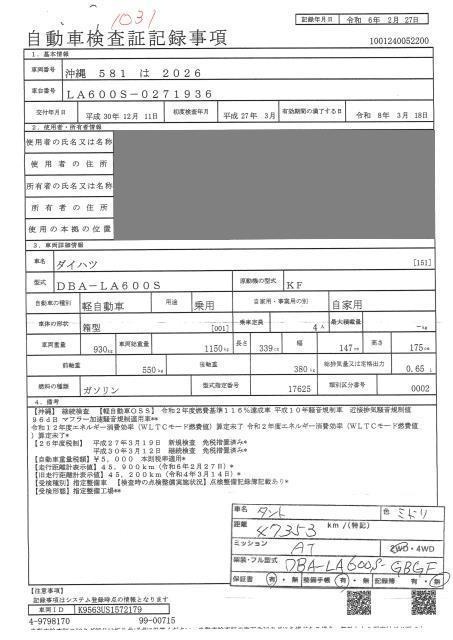 1031
記録年月日 令和 6年 2月 27日
自動車検査証記録事項
1001240052200
1. 基本情報
車両番号 沖縄 581 は 2026
車台番号 LA600S-0271936
交付年月日 平成 30年 12月 11日 初度検査年月 平成 27年 3月 有効期間の満了する日 令和 8年 3月 18日
2. 使用者・所有者情報
使用者の氏名又は名称
使用者の住所
所有者の氏名又は名称
所有者の住所
使用の本拠の位置
3. 車両詳細情報
車名 ダイハツ [151]
型式 DBA-LA600S 原動機の型式 KF
自動車の種別 軽自動車 用途 乗用 自家用・事業用の別 自家用
車体の形状 箱型 [001] 乗車定員 4人 最大積載量 -kg
車両重量 930kg 車両総重量 1150kg 長さ 339cm 幅 147cm 高さ 175cm
前軸重 550kg 後軸重 380kg 総排気量又は定格出力 0.65 L
燃料の種類 ガソリン 型式指定番号 17625 類別区分番号 0002
4. 備考
【沖縄】 継続検査 【軽自動車OSS】 令和2年度燃費基準116%達成車 平成10年騒音規制車 近接排気騒音規制値
96dB マフラー加速騒音規制適用車**
令和12年度エネルギー消費効率(WLTCモード燃費値)算定未了 令和2年度エネルギー消費効率(WLTCモード燃費値
)算定未了*
【26年度税制】 平成27年3月19日 新規検査 免税措置済み*
平成30年3月12日 継続検査 免税措置済み*
【自動車重量税額】¥5,000 本則税率適用*
【走行距離計表示値】45,900km(令和6年2月27日)*
【旧走行距離計表示値】45,200km(令和4年3月14日)*
【受検種別】指定整備車 【検査時の点検整備実施状況】点検整備記録簿記載あり*
【受検形態】指定整備工場**
車名 タント 色 ミドリ
距離 47353 km/(特記)
ミッション AT 2WD・4WD
架装・フル型式 DBA-LA600S-GBGF
保証書 有・無 整備手帳 有・無 記録簿 有・無
【注意事項】
記録事項はシステム登録時点の情報となります
車両ID K9563US1572179
4-9798170 99-00715